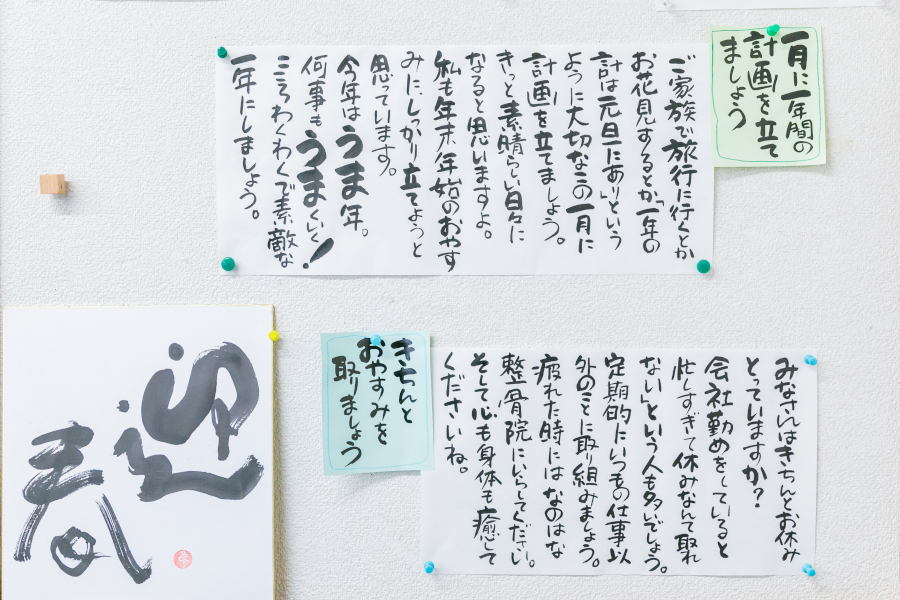 一月に一年間の
計画を立て
ましょう
ご家族で旅行に行くとか
お花見するとか「一年の
計は元旦にあり」という
ように大切なこの一月に
計画を立てましょう。
きっと素晴らしい日々に
なると思いますよ。
私も年末年始のおやす
みに、しっかり立てようと
思っています。
今年はうま年。
何事もうまくいく!
こころわくわくで素敵な
一年にしましょう。
きちんと
おやすみを
取りましょう
みなさんはきちんとお休み
とっていますか?
会社勤めをしていると
忙しすぎて休みなんて取れ
ない」という人も多いでしょう。
定期的にいつもの仕事以
外のことに取り組みましょう。
疲れた時にはなのはな
整骨院にいらしてください。
そして心も身体も癒して
くださいね。
迎
春